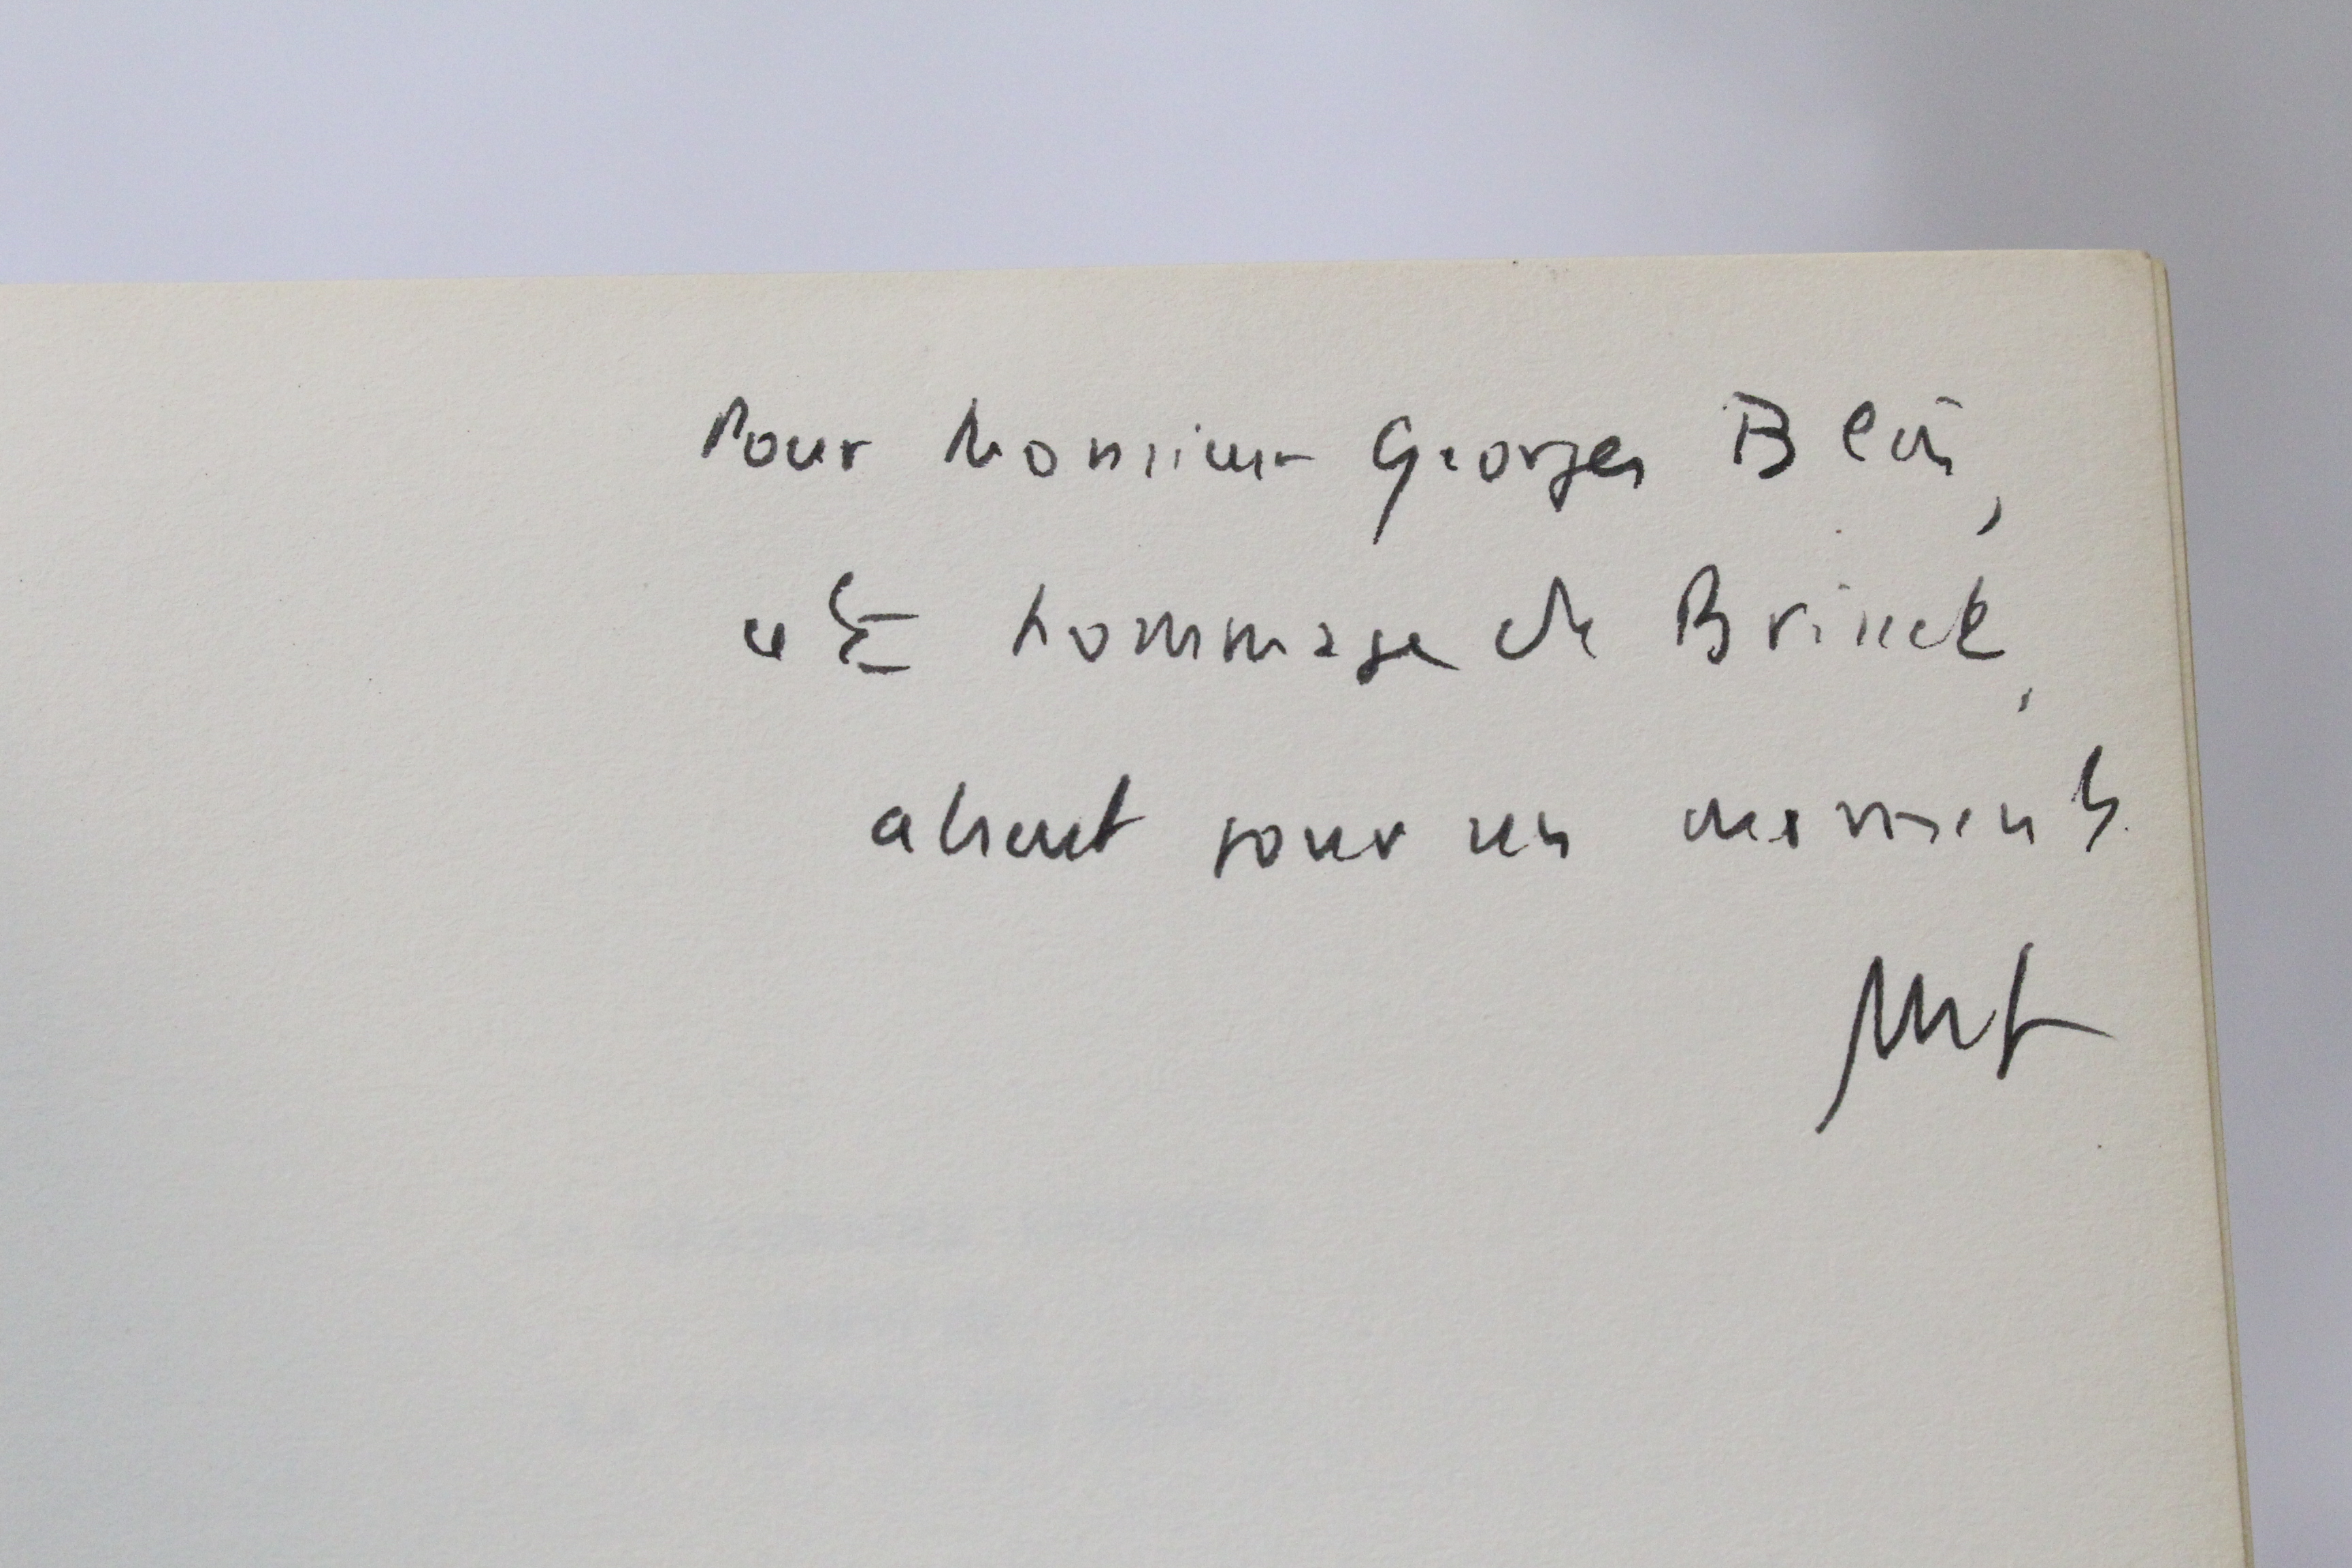 Pour Monsieur Georges Blin,
cet hommage de Brisset,
absent pour un moment.
MF